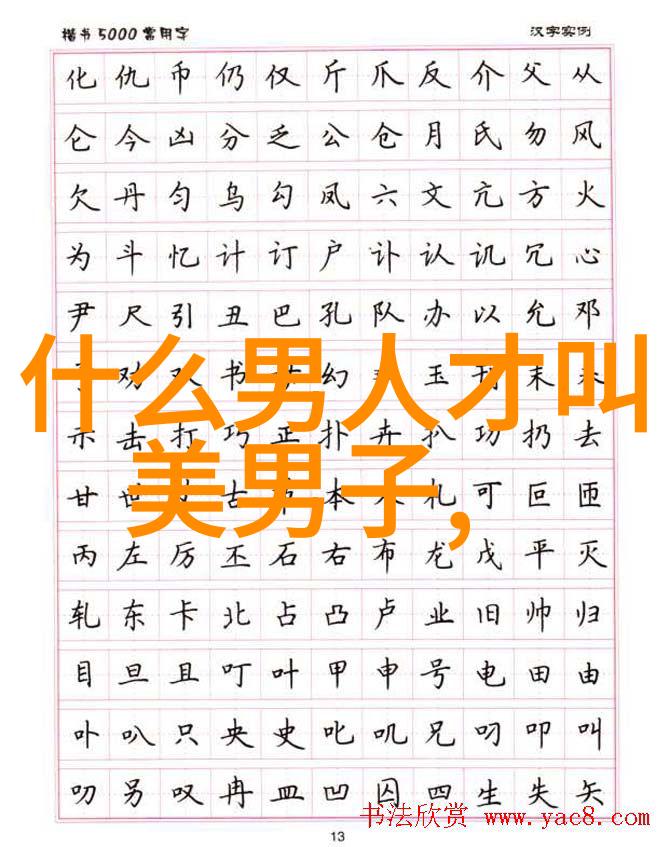 楷书5000常用字 汉字实例
化 仇 币 仍 仅 斤 爪 反 介 父 从
仑 今 凶 分 乏 公 仓 月 氏 勿 风
欠 丹 匀 乌 勾 凤 六 文 亢 方 火
为 斗 忆 计 订 户 讣 认 讥 冗 心
尹 尺 引 丑 巴 孔 队 办 以 允 邓
劝 双 书 幻 玉 末
什么男人才叫
示 击 打 巧 正 扑 卉 扒 功 扔 去
甘 世 古 本 札 可 叵 匝
美男子,
丙 左 厉 丕 石 右 布 龙 戊 平 灭
轧 东 卡 北 占 凸 卢 业 旧 帅 归
目 旦 且 叮 叶 甲 申 号 电 田 由
卟 叭 只 央 史 叱 叽 兄 叼 叩 叫
叻 另 叹 冉 皿 凹 囚 四 生 失 矢
书法欣赏 www.yac8.com
13